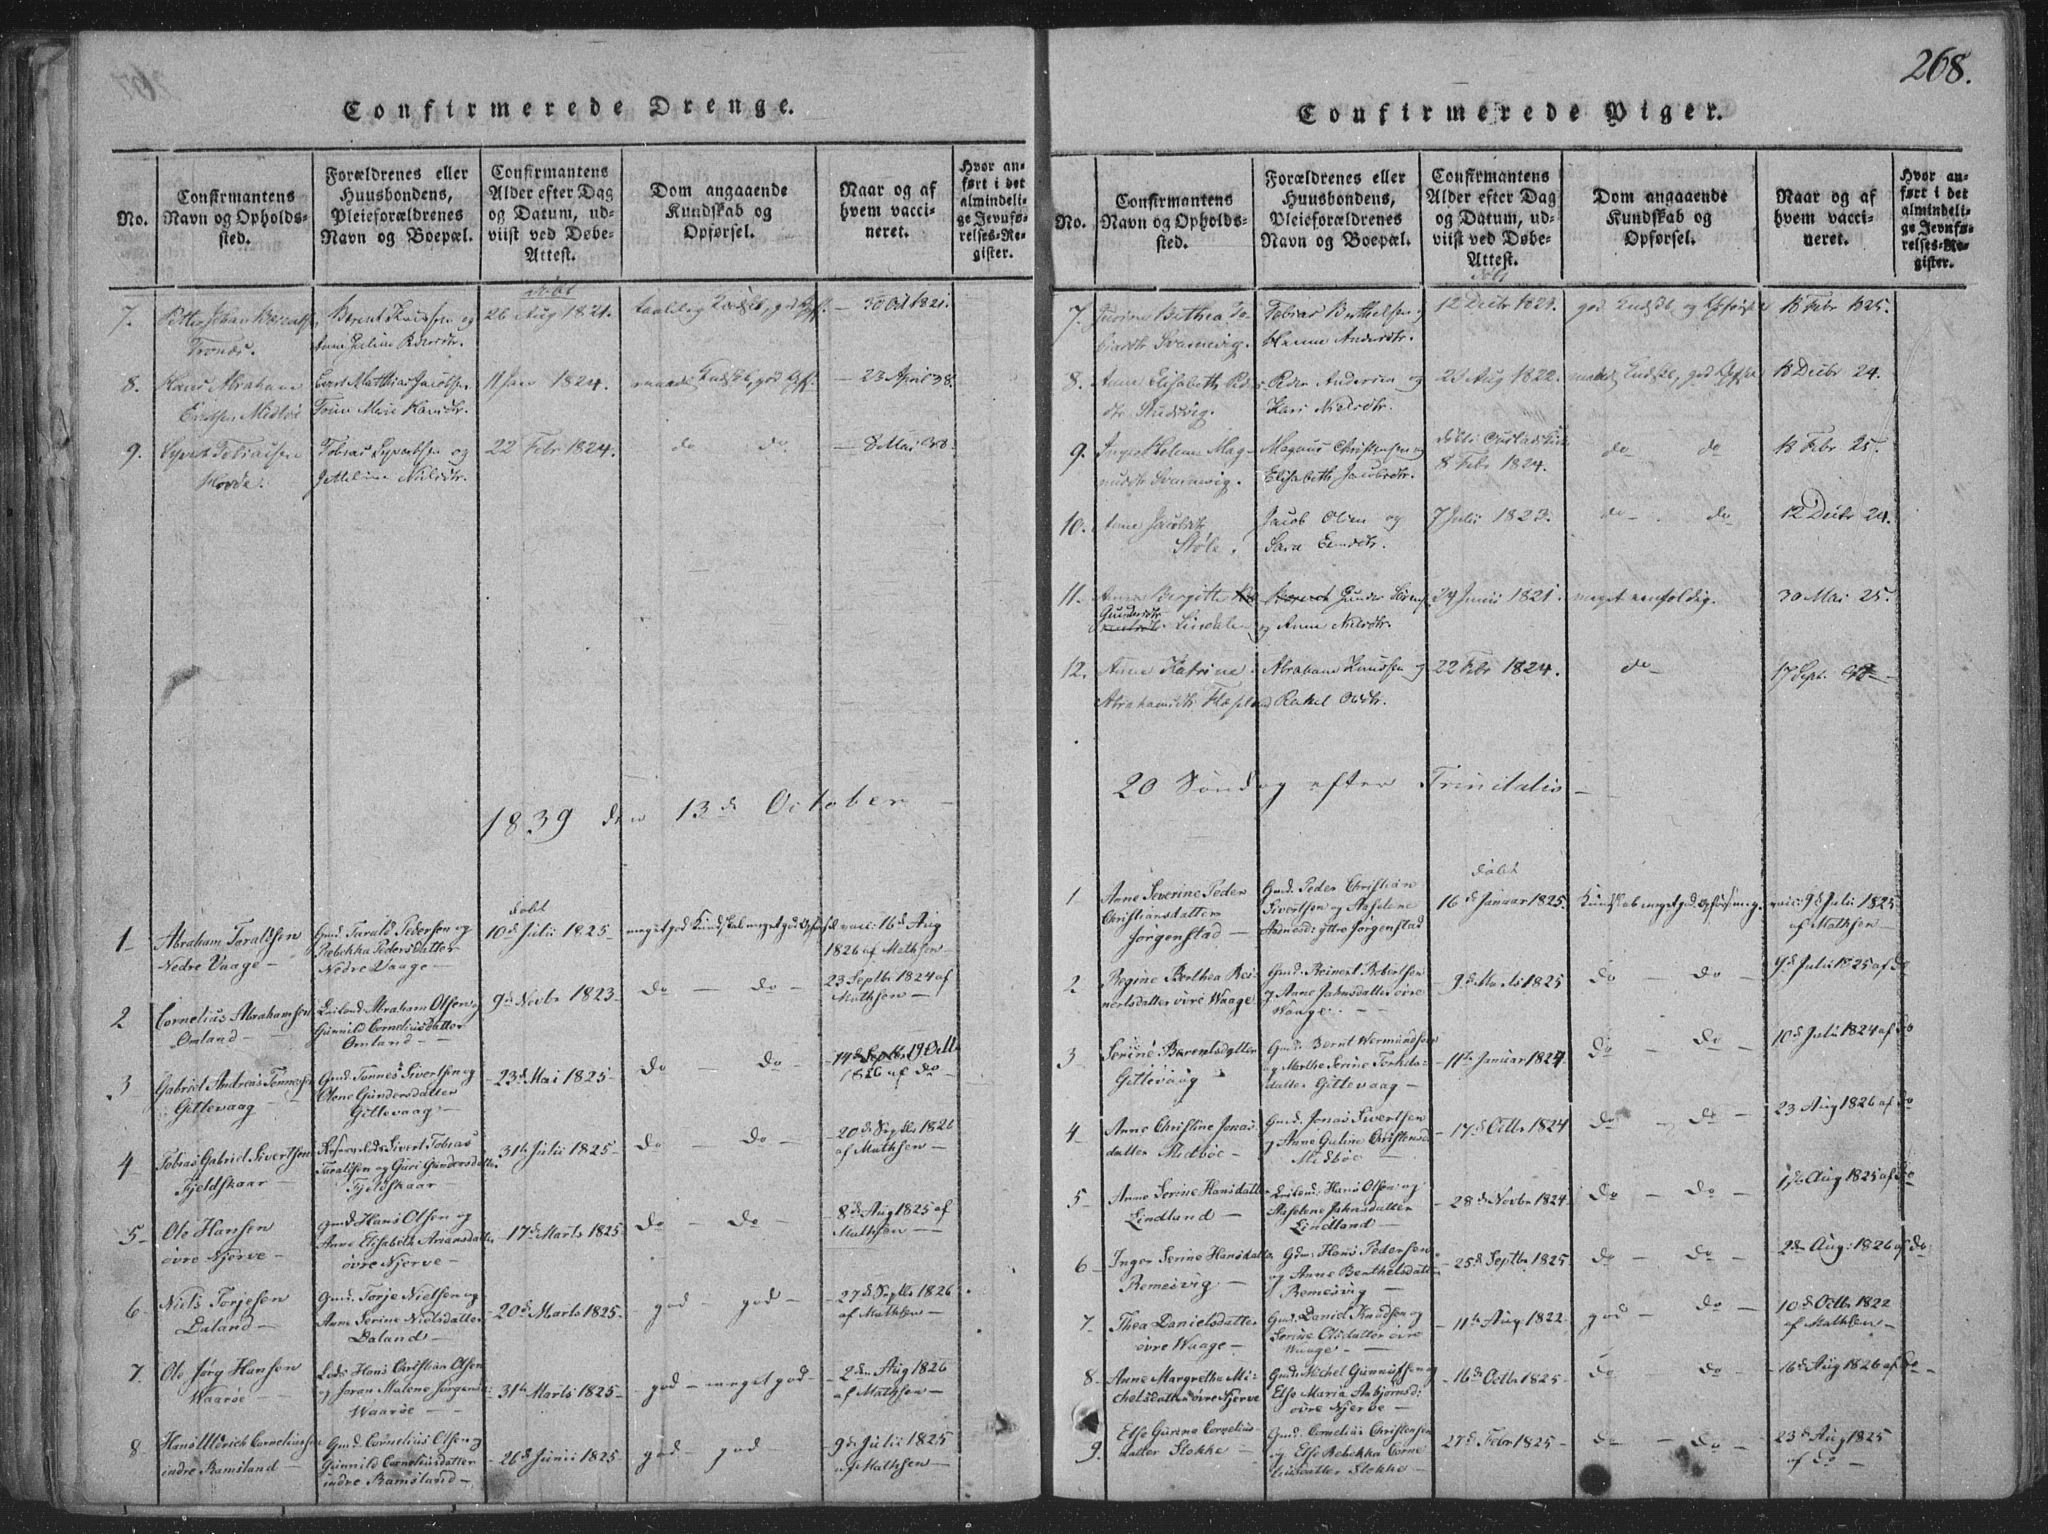 268.
Confirmerede Drenge.
No.
Confirmantens
Navn og Opholds-
sted.
Forældrenes eller
Huusbondens,
Pleieforældrenes
Navn og Boepæl.
Confirmantens
Alder efter Dag
og Datum, ud-
viist ved Døbe-
Attest.
Dom angaaende
Kundskab og
Opførsel.
Naar og af
hvem vacci-
neret.
Hvor an-
ført i det
almindeli-
ge Jevnfø-
relses-Re-
gister.
døbt
7.
Berent Knudsen og
26 Aug 1821.
30 Oct 1821.
8.
Hans Abraham
11 Jan 1824.
23 April 38.
9.
Tobias og
22 Febr 1824.
do do
8 Mai 38.
1839 den 13de October
døbt
1
Abraham Taraldsen
Nedre Vaage
Gmd. Tarald Pedersen og
Rebekka Pedersdatter
Nedre Vaage
10de Julii 1825
meget god Kundskab meget god Opførsel
vacc: 16de Aug
1826 af Mathsen
2
Cornelius Abrahamsen
Omland
Leilend Abraham Olsen og
Gunnild Corneliusdatter
Omland
9de Novbr 1823
do do
23 Septbr 1824 af
Mathsen
3
Gabriel Andreas Tønnesen
Gittevaag
Gmd. Tønnes Sivertsen og
Olene Gundersdatter
Gittevaag
23de Mai 1825
do do
14de Septbr 19 Octb
1826 af do
4
Tobias Gabriel Sivertsen
Fjeldskaar
Sivert Tobias
Taraldsen og Guri Gundersdatter
Fjeldskaar
31te Julii 1825
do do
20de Septbr 1826
af Mathsen
5
Ole Hansen
övre Njerve
Gmd Hans Olsen og
Anne Elisabeth Ariansdatter
övre Njerve
17de Marts 1825
do do
8de Aug 1825 af
Mathsen
6
Niels Torjesen
Daland
Gmd. Torje Nielsen og
Anne Serine Nielsdatter
Daland
20de Marts 1825
god god
27de Septbr 1826
af Mathsen
7.
Ole Jørg Hansen
Waarøe
Lods Hans Christian Olsen
og Joran Malene Jørgensd
Waarøe
31te Marts 1825
god meget god
2den Aug 1826
af Mathsen
8
Hans Uldrich Corneliussen
indre Ramsland
Gmd Cornelius Olsen og
Gunnild Corneliusdatter
indre Ramsland
26de Junii 1825
god god
9de Julii 1825
af Mathsen
Confirmerede Piger.
No.
Confirmantens
Navn og Opholds-
sted.
Forældrenes eller
Huusbondens,
Pleieforældrenes
Navn og Boepæl.
Confirmantens
Alder efter Dag
og Datum, ud-
viist ved Døbe-
Attest.
Dom angaaende
Kundskab og
Opførsel.
Naar og af
hvem vacci-
neret.
Hvor an-
ført i det
almindeli-
ge Jevnfø-
relses-Re-
gister.
7.
Tobias Berthelsen og
Hanne Andersdtr.
12 Decbr 1821.
18 Febr 1825.
8.
Anne Elisabeth
Peder Andersen og
Kari Nielsdtr.
Aug 1822.
18 Decbr 24.
9.
Inger Helene Mag-
nusdtr Svennevig.
Magnus Christensen og
Elisabeth Jacobsdtr.
8 Febr 1824.
do do
18 Febr 25.
10.
Anne Jacobsdtr
Støle.
Jacob Olsen og
Sara
7 Julii 1823.
do do
12 Decbr 24.
11.
Anne Birgitte
Gundersdtr
Lindal
Gunder
og Anne Nielsdtr.
29 Junii 1821.
meget eenfoldig.
30 Mai 25.
12.
Anne Katrine
Abrahamsdtr
Abraham Knudsen og
Rakel Olsdtr.
22 Febr 1824.
do
17 Sept.
20 Søndag efter Trinitatis
døbt
1
Anne Severine Peder
Christiansdatter
Jörgenstad
Gmd. Peder Christian
Sivertsen og Aaselene
yttre Jørgenstad
16de Januar 1825.
Kundskab meget god
vacc: 9de Julii 1825
af Mathsen
2
Regine Berthea Rei-
nertsdatter övre Waage
Gmd. Reinert Robertsen
og Anne Jahnsdatter övre
Waage
9de Marts 1825
do do
9de Julii 1825 af do
3
Serine Berentsdatter
Gittevaag
Gmd. Bernt Wermundsen
og Marthe Serine Terkels-
datter Gittevaag
11te Januar 1824.
do do
10de Julii 1824 af do
4
Anne Christine Jonas-
datter Midböe
Gmd. Jonas Sivertsen
og Anne Guline Christensd
Midböe
17de Octbr 1824
do do
23 Aug 1826 af do
5
Anne Serine Hansdatter
Lindland
Leilend: Hans Olsen og
Aaselene Jahnsdatter
Lindland
28de Novbr 1824
do do
17de Aug 1825 af do
6
Inger Serine Hansdatter
Remesvig
Gdm: Hans Pedersen
og Anne Berthelsdatter
Remesvig
25de Septbr 1825
do do
2den Aug: 1826 af do.
7
Thea Danielsdatter
övre Waage
Gmd. Daniel Knudsen og
Serine Olsdatter övre
Waage
11te Aug 1822
god do
10de Octbr 1822
af Mathsen
8
Anne Margrethe Mi-
chelsdatter övre Njerve
Gmd. Michel Gunnufsen og
Else Maria Asbjornsd:
övre Njerve
16de Octbr 1825
do do
16de Aug 1826 af do
9.
Else Gurine Cornelius
datter Stokke
Gmd. Cornelius Christensen
og Else Rebekka Corne
liusdatter Stokke
27de Febr 1825
do do
23de Aug 1825
af do